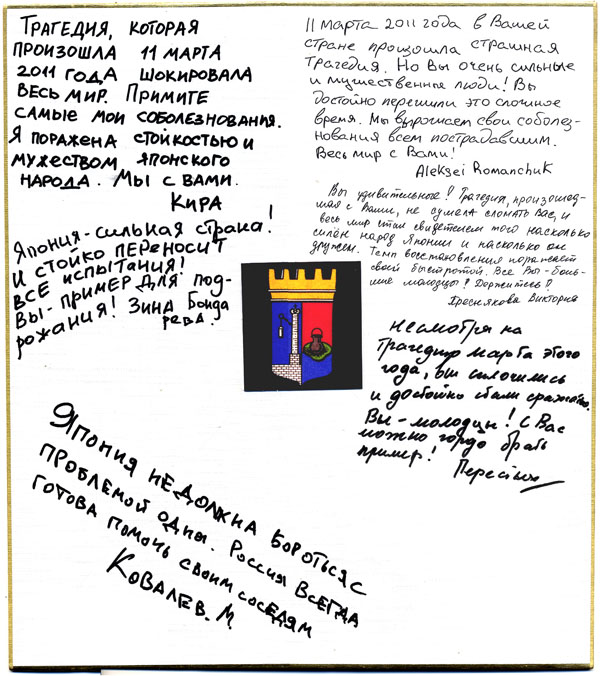 ТРАГЕДИЯ, КОТОРАЯ
ПРОИЗОШЛА 11 МАРТА
2011 ГОДА ШОКИРОВАЛА
ВЕСЬ МИР. ПРИМИТЕ
САМЫЕ МОИ СОБОЛЕЗНОВАНИЯ.
Я ПОРАЖЕНА СТОЙКОСТЬЮ И
МУЖЕСТВОМ ЯПОНСКОГО
НАРОДА. МЫ С ВАМИ.
КИРА
11 марта 2011 года в Вашей
стране произошла страшная
трагедия. Но Вы очень сильные
и мужественные люди! Вы
достойно пережили это сложное
время. Мы выражаем свои соболез-
нования всем пострадавшим.
Весь мир с Вами!
Aleksei Romanchuk
Вы удивительные! Трагедия, произошед-
шая с Вами, не сумела сломать Вас, и
весь мир стал свидетелем того насколько
силён народ Японии и насколько он
дружен. Темп восстановления поражает
своей быстротой. Все Вы - боль-
шие молодцы! Держитесь!
Виктория
Япония - сильная страна!
И стойко ПЕРЕНОСИТ
ВСЕ ИСПЫТАНИЯ!
ВЫ - ПРИМЕР ДЛЯ под-
ражания! Зина Бонда
рева.
Несмотря на
трагедию марта этого
года, вы сплотились
и достойно стали сражаться.
Вы - молодцы! С Вас
можно гордо брать
пример!
ЯПОНИЯ НЕ ДОЛЖНА БОРОТЬСЯ С
ПРОБЛЕМОЙ ОДНА. РОССИЯ ВСЕГДА
ГОТОВА ПОМОЧЬ СВОИМ СОСЕДЯМ
КОВАЛЕВ. М.